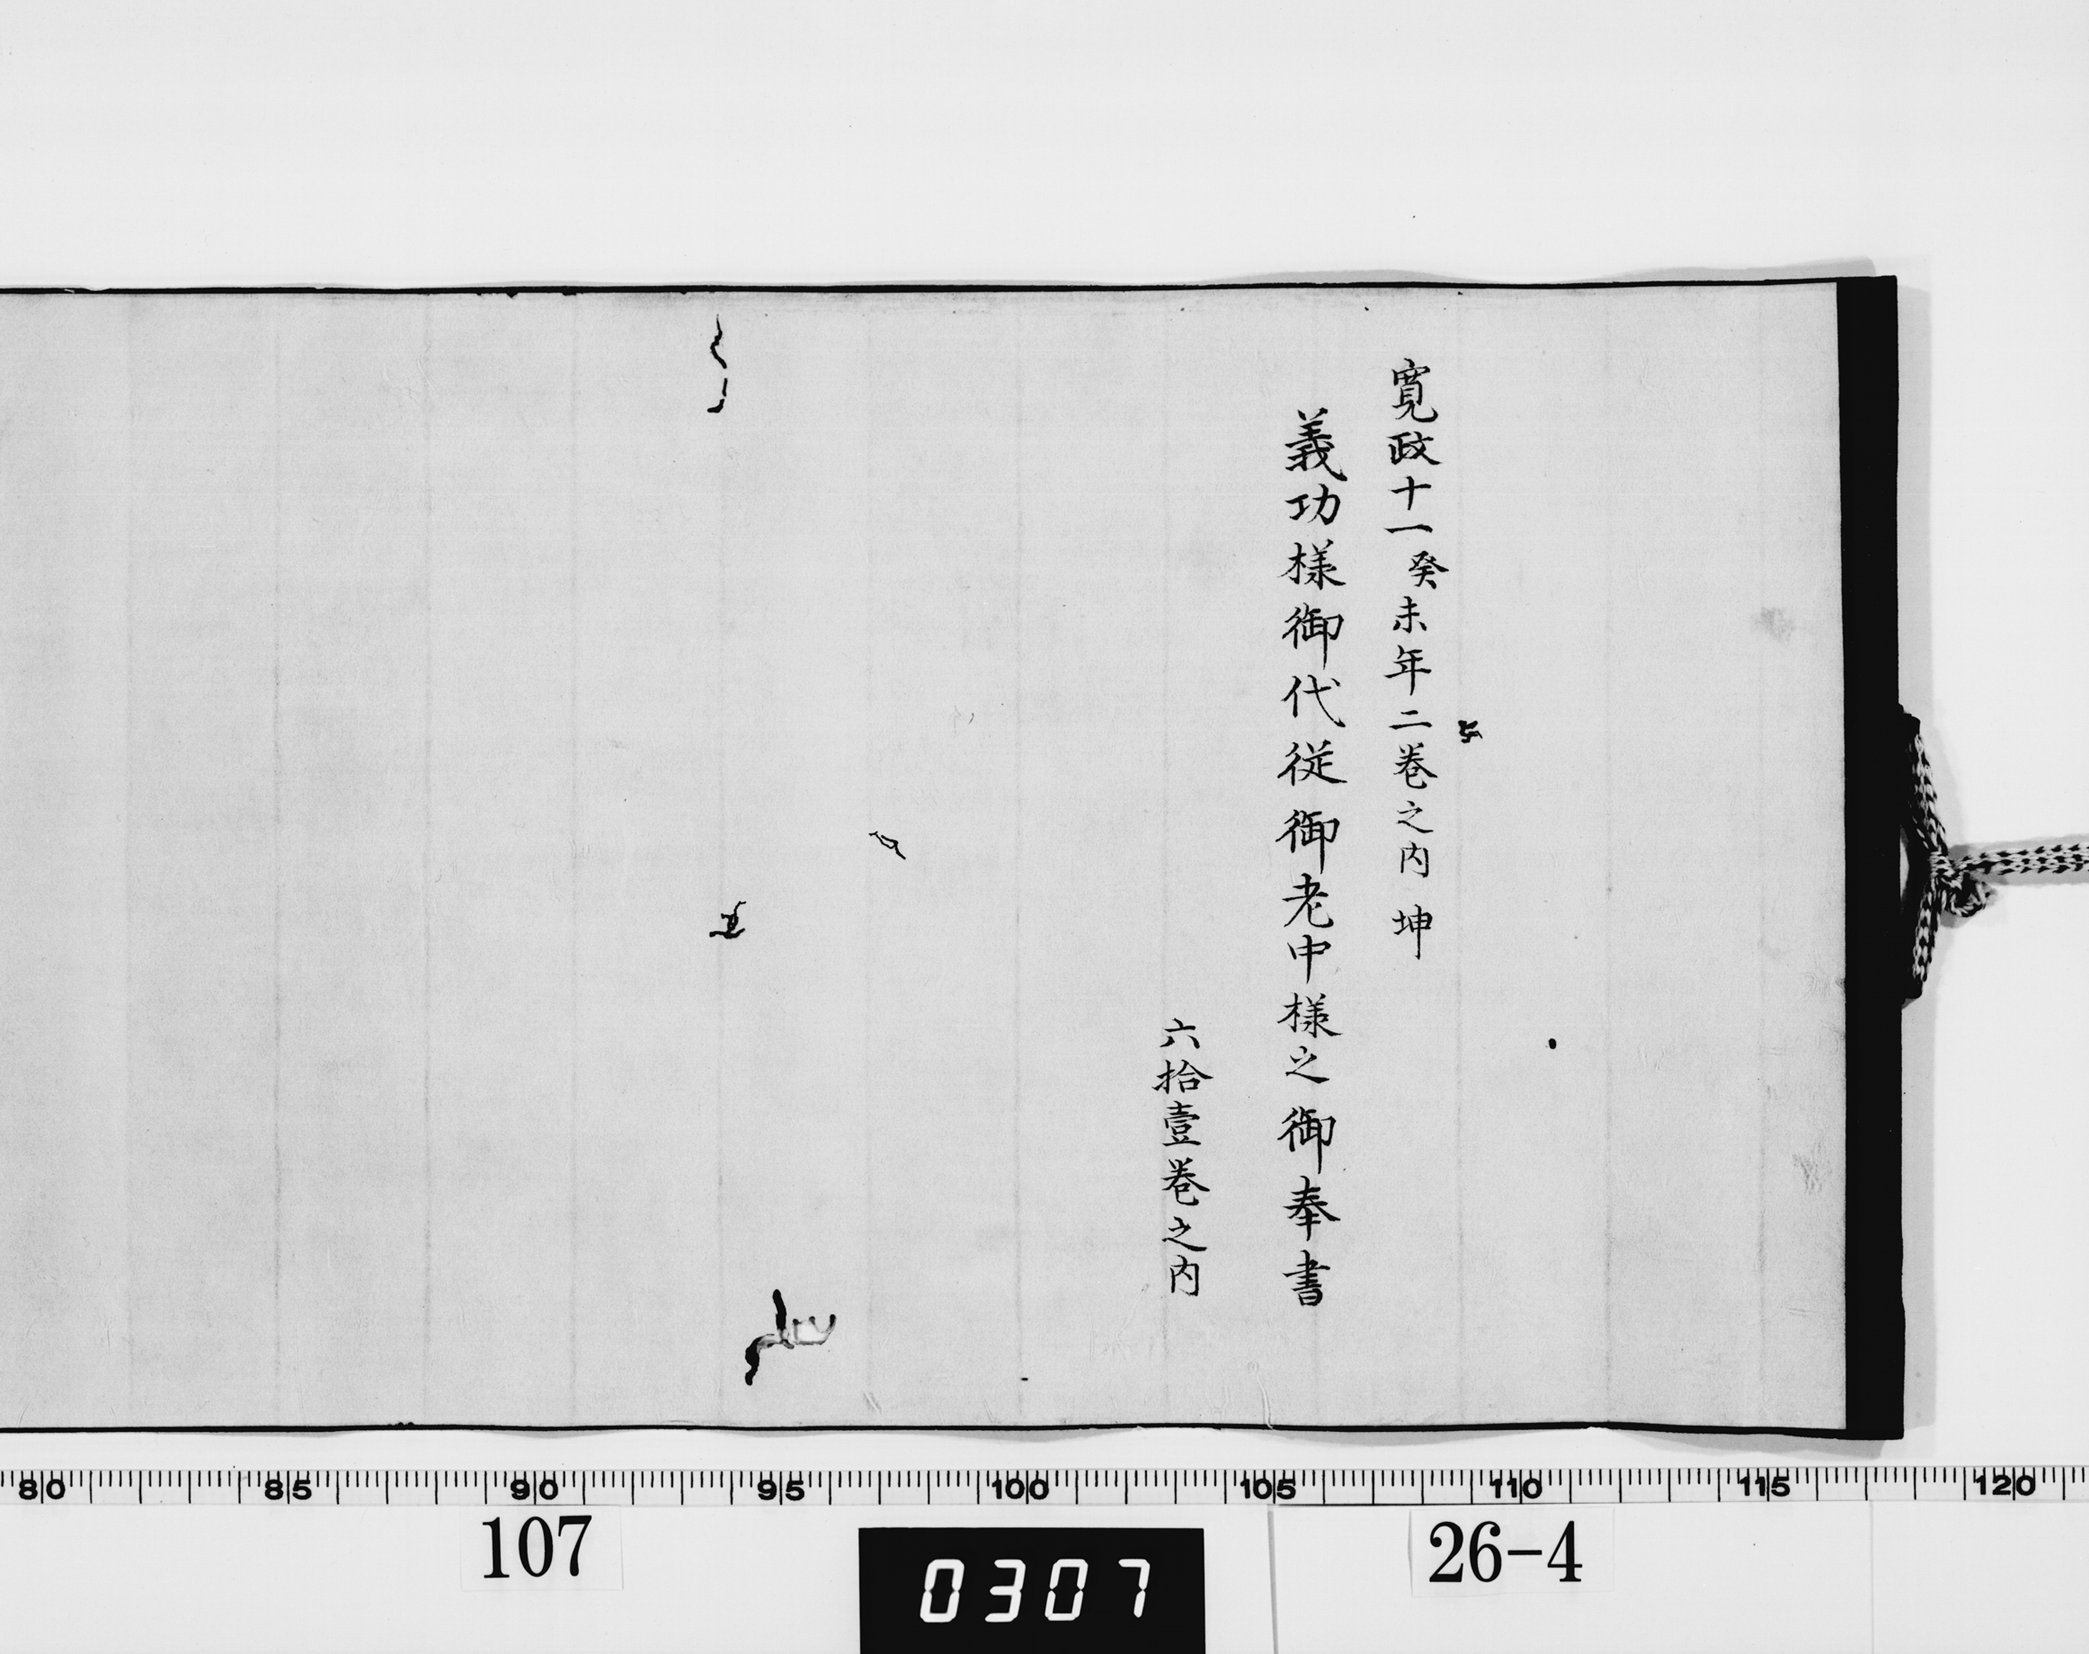 寛政十一癸未年二卷之内 坤
義功様御代従御老中様之御奉書
六拾壹卷之内
80 85 90 95 100 105 110 115 120
107
0307
26-4